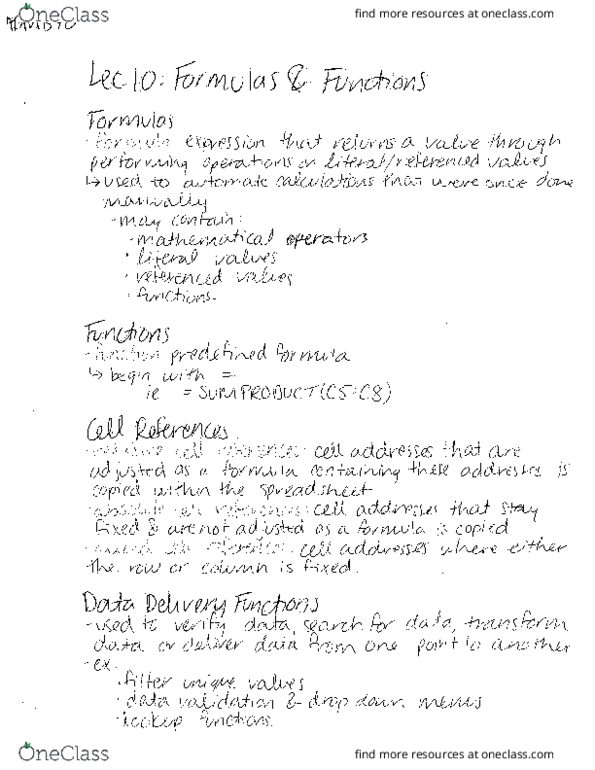 OneClass
find more resources at oneclass.com
Lec 10: Formulas & Functions
Formulas
· formula expression that returns a value through
performing operations on literal/referenced values
↳ used to automate calculations that were once done
manually
· may contain:
· mathematical operators
· literal values
· referenced values
· functions.
Functions
· function predefined formula
↳ begin with =
ie = SUMPRODUCT(C5:C8)
Cell References
· relative cell reference: cell addresses that are
adjusted as a formula containing these addresses is
copied within the spreadsheet
· absolute cell reference: cell addresses that stay
fixed & are not adjusted as a formula is copied
· mixed cell reference: cell addresses where either
the row or column is fixed.
Data Delivery Functions
· used to verify data, search for data, transform
data or deliver data from one part to another
· ex.
· filter unique values
· data validation & drop down menus
· lookup functions
OneClass
find more resources at oneclass.com